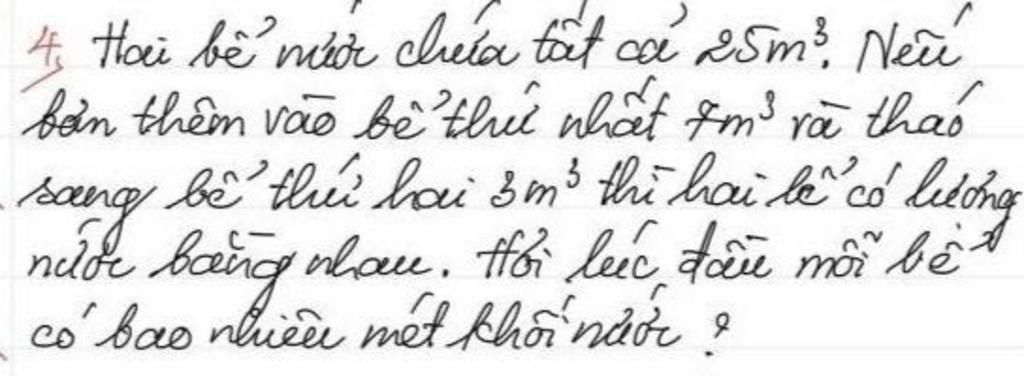 4, Hai bể nước chứa tất cả 25m³. Nếu
bơm thêm vào bể thứ nhất 7m³ và tháo
sang bể thứ hai 3m³ thì hai bể có lượng
nước bằng nhau. Hỏi lúc đầu mỗi bể
có bao nhiêu mét khối nước?